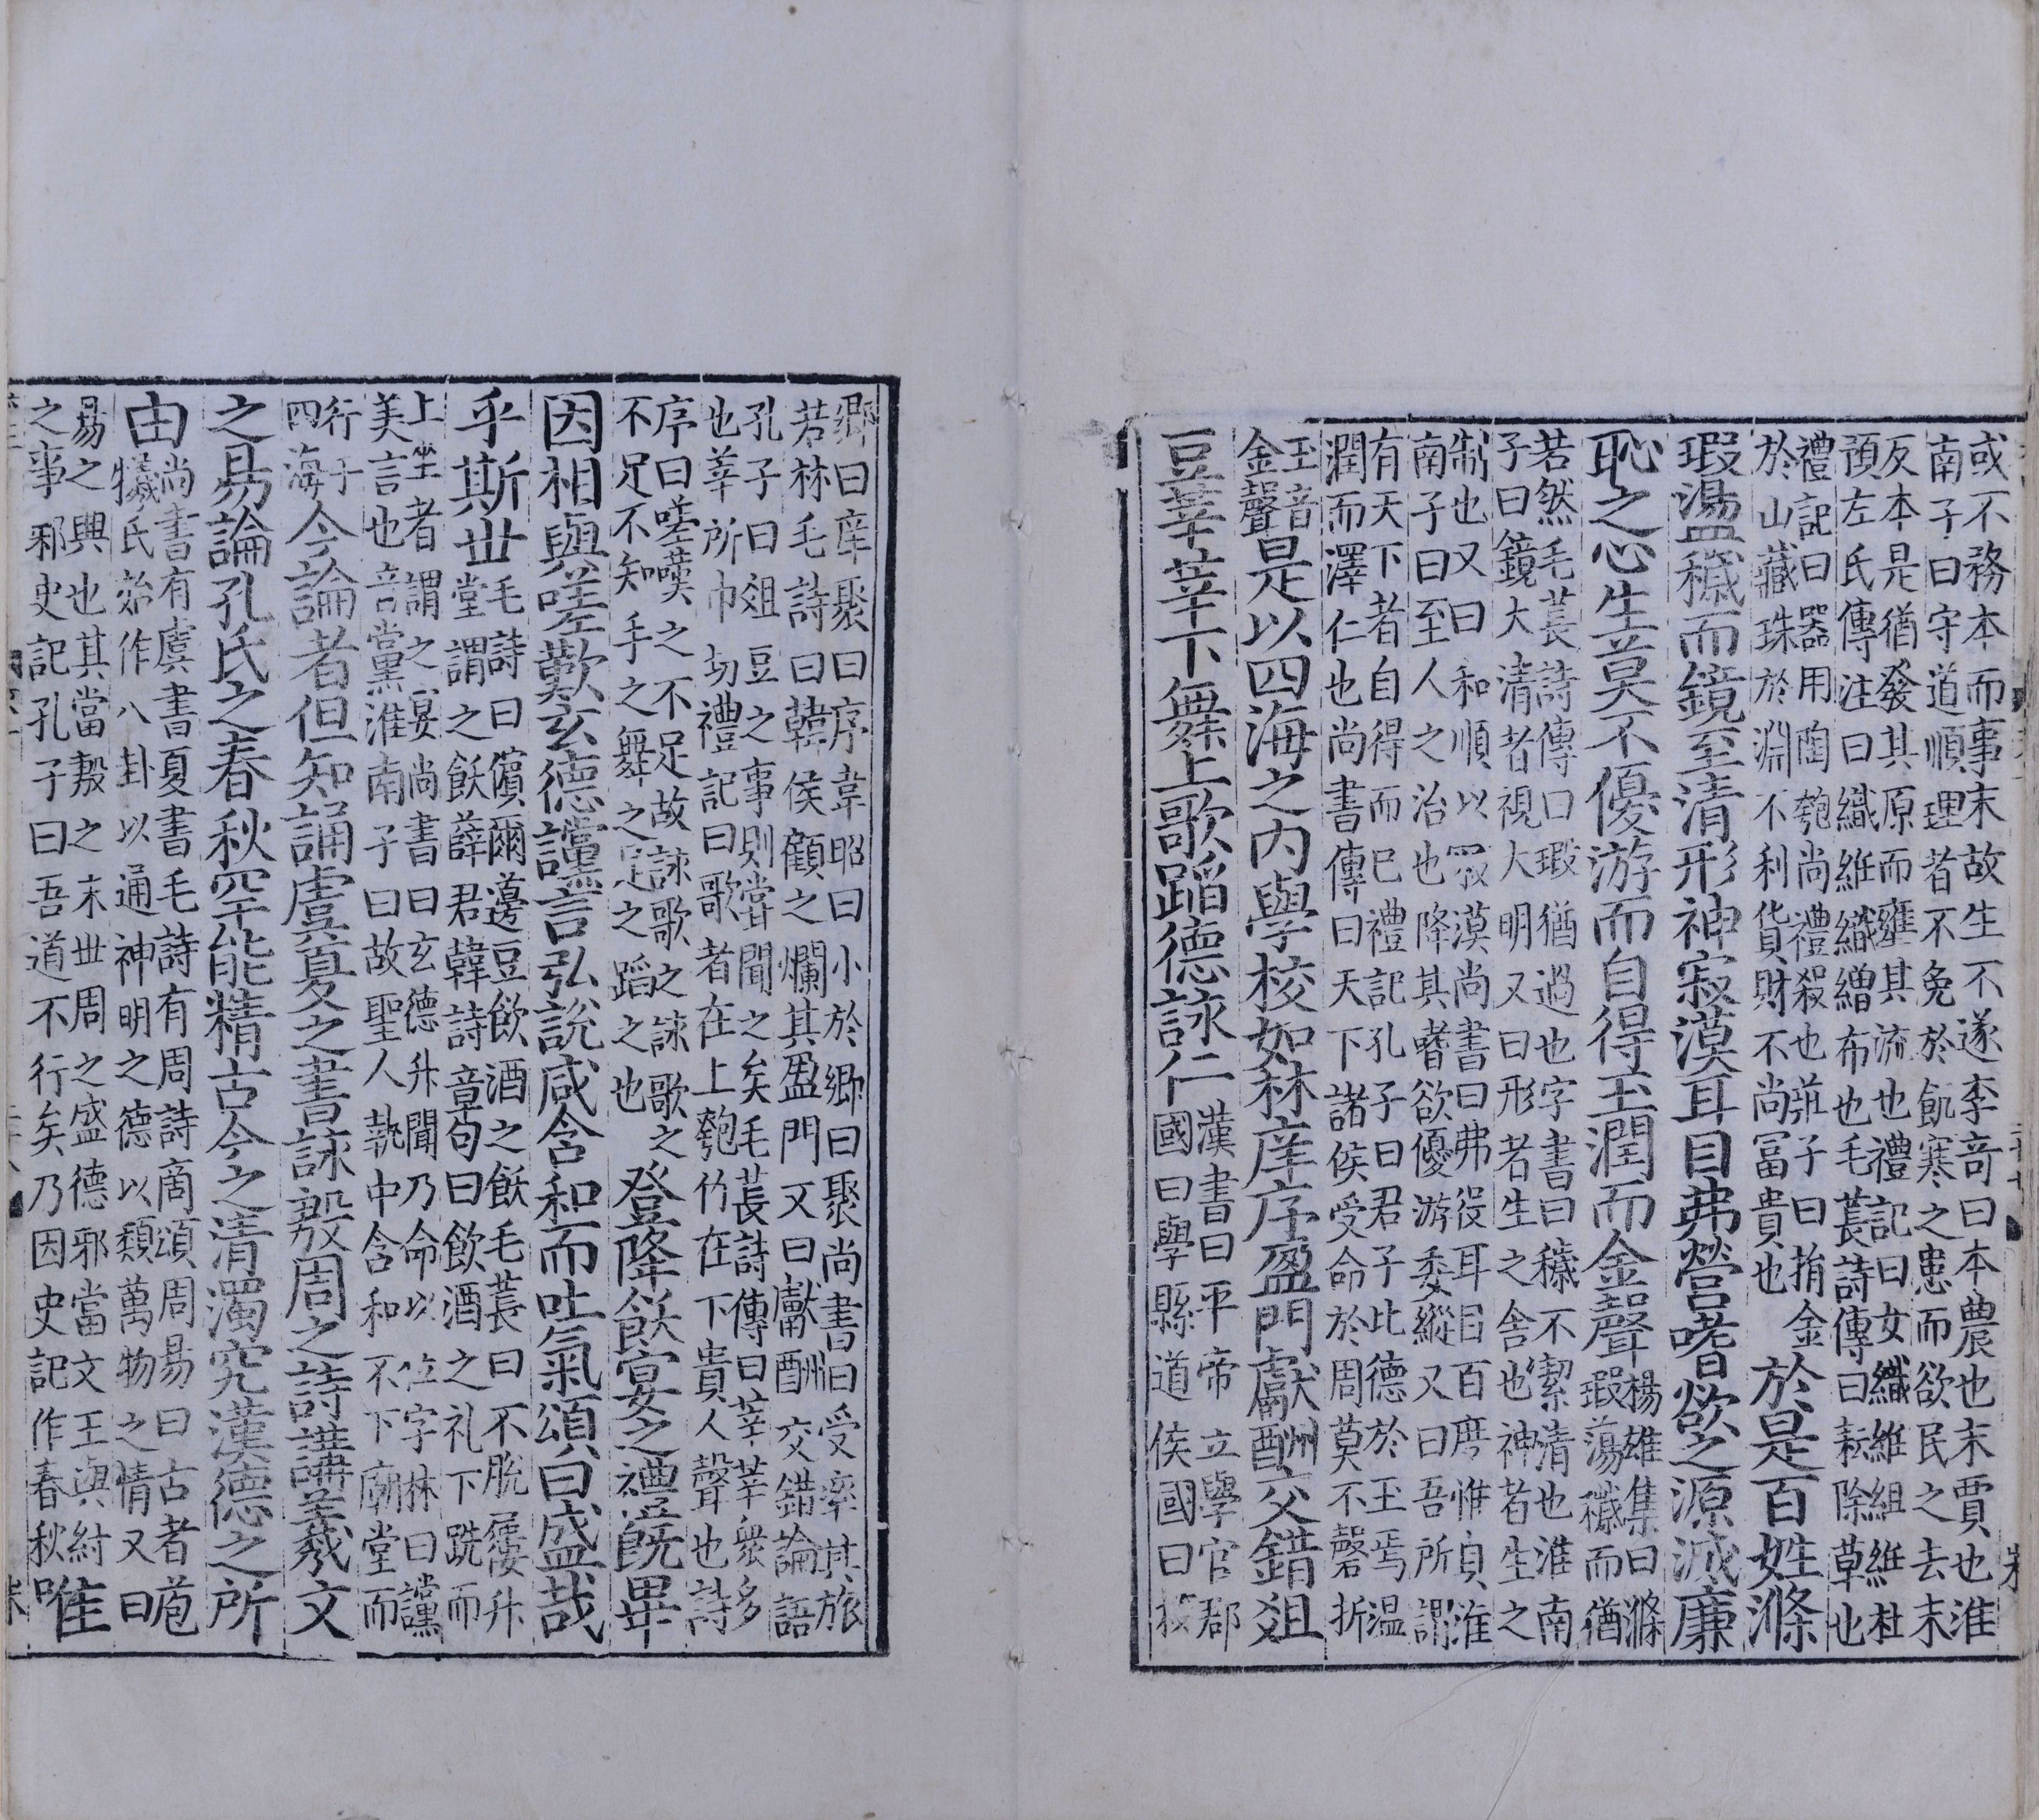 或不務本而事末故生不遂李竒曰本農也末賈也淮
南子曰守道順理者不免於飢寒之患而欲民之去末
反本是猶發其原而壅其流也禮記曰女織維組維杜
預左氏傳注曰織維織繒布也毛萇詩傳曰耘除草也
禮記曰器用陶匏尚禮殺也莊子曰捐金
於山藏珠於淵不利貨財不尚冨貴也
於是百姓滌
瑕盪穢而鏡至清形神寂漠耳目弗營嗜欲之源滅廉
恥之心生莫不優游而自得玉潤而金聲
楊雄集曰滌
瑕蕩穢而猶
若然毛萇詩傳曰瑕猶過也字書曰穢不絜清也淮南
子曰鏡大清者視大明又曰形者生之舎也神者生之
制也又曰和順以寂漠尚書曰弗役耳目百度惟貞淮
南子曰至人之治也降其嗜欲優游委縱又曰吾所謂
有天下者自得而已禮記孔子曰君子比德於玉焉温
潤而澤仁也尚書傳曰天下諸侯受命於周莫不磬折
玉音
金聲
是以四海之内學校如林庠序盈門獻酬交錯爼
豆莘莘下舞上歌蹈德詠仁
漢書曰平帝立學官郡
國曰學縣道侯國曰校
鄉曰庠聚曰序韋昭曰小於鄉曰聚尚書曰受率其旅
若林毛詩曰韓侯顧之爛其盈門又曰獻酬交錯論語
孔子曰爼豆之事則甞聞之矣毛萇詩傳曰莘莘衆多
也莘所巾切禮記曰歌者在上匏竹在下貴人聲也詩
序曰嗟歎之不足故詠歌之詠歌之
不足不知手之舞之足之蹈之也
登降飫宴之禮旣畢
因相與嗟歎玄德讜言弘說咸含和而吐氣頌曰盛哉
乎斯丗
毛詩曰儐爾籩豆飲酒之飫毛萇曰不脫屨升
堂謂之飫薛君韓詩章句曰飲酒之礼下跣而
上坐者謂之宴尚書曰玄德升聞乃命以位字林曰讜
美言也音黨淮南子曰故聖人執中含和不下廟堂而
行于
四海
今論者但知誦虞夏之書詠殷周之詩講羲文
之易論孔氏之春秋罕能精古今之清濁究漢德之所
由
尚書有虞書夏書毛詩有周詩商頌周易曰古者庖
犧氏始作八卦以通神明之德以類萬物之情又曰
易之興也其當殷之末丗周之盛德邪當文王與紂
之事邪史記孔子曰吾道不行矣乃因史記作春秋
唯